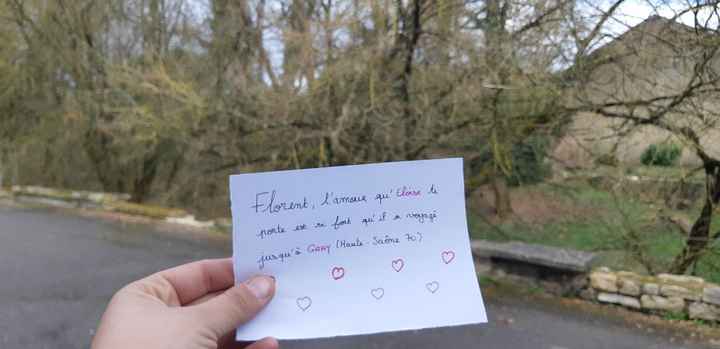 Florent, l'amour qu'Eloïse te
porte est si fort qu'il a voyagé
jusqu'à Gray (Haute-Saône 70)